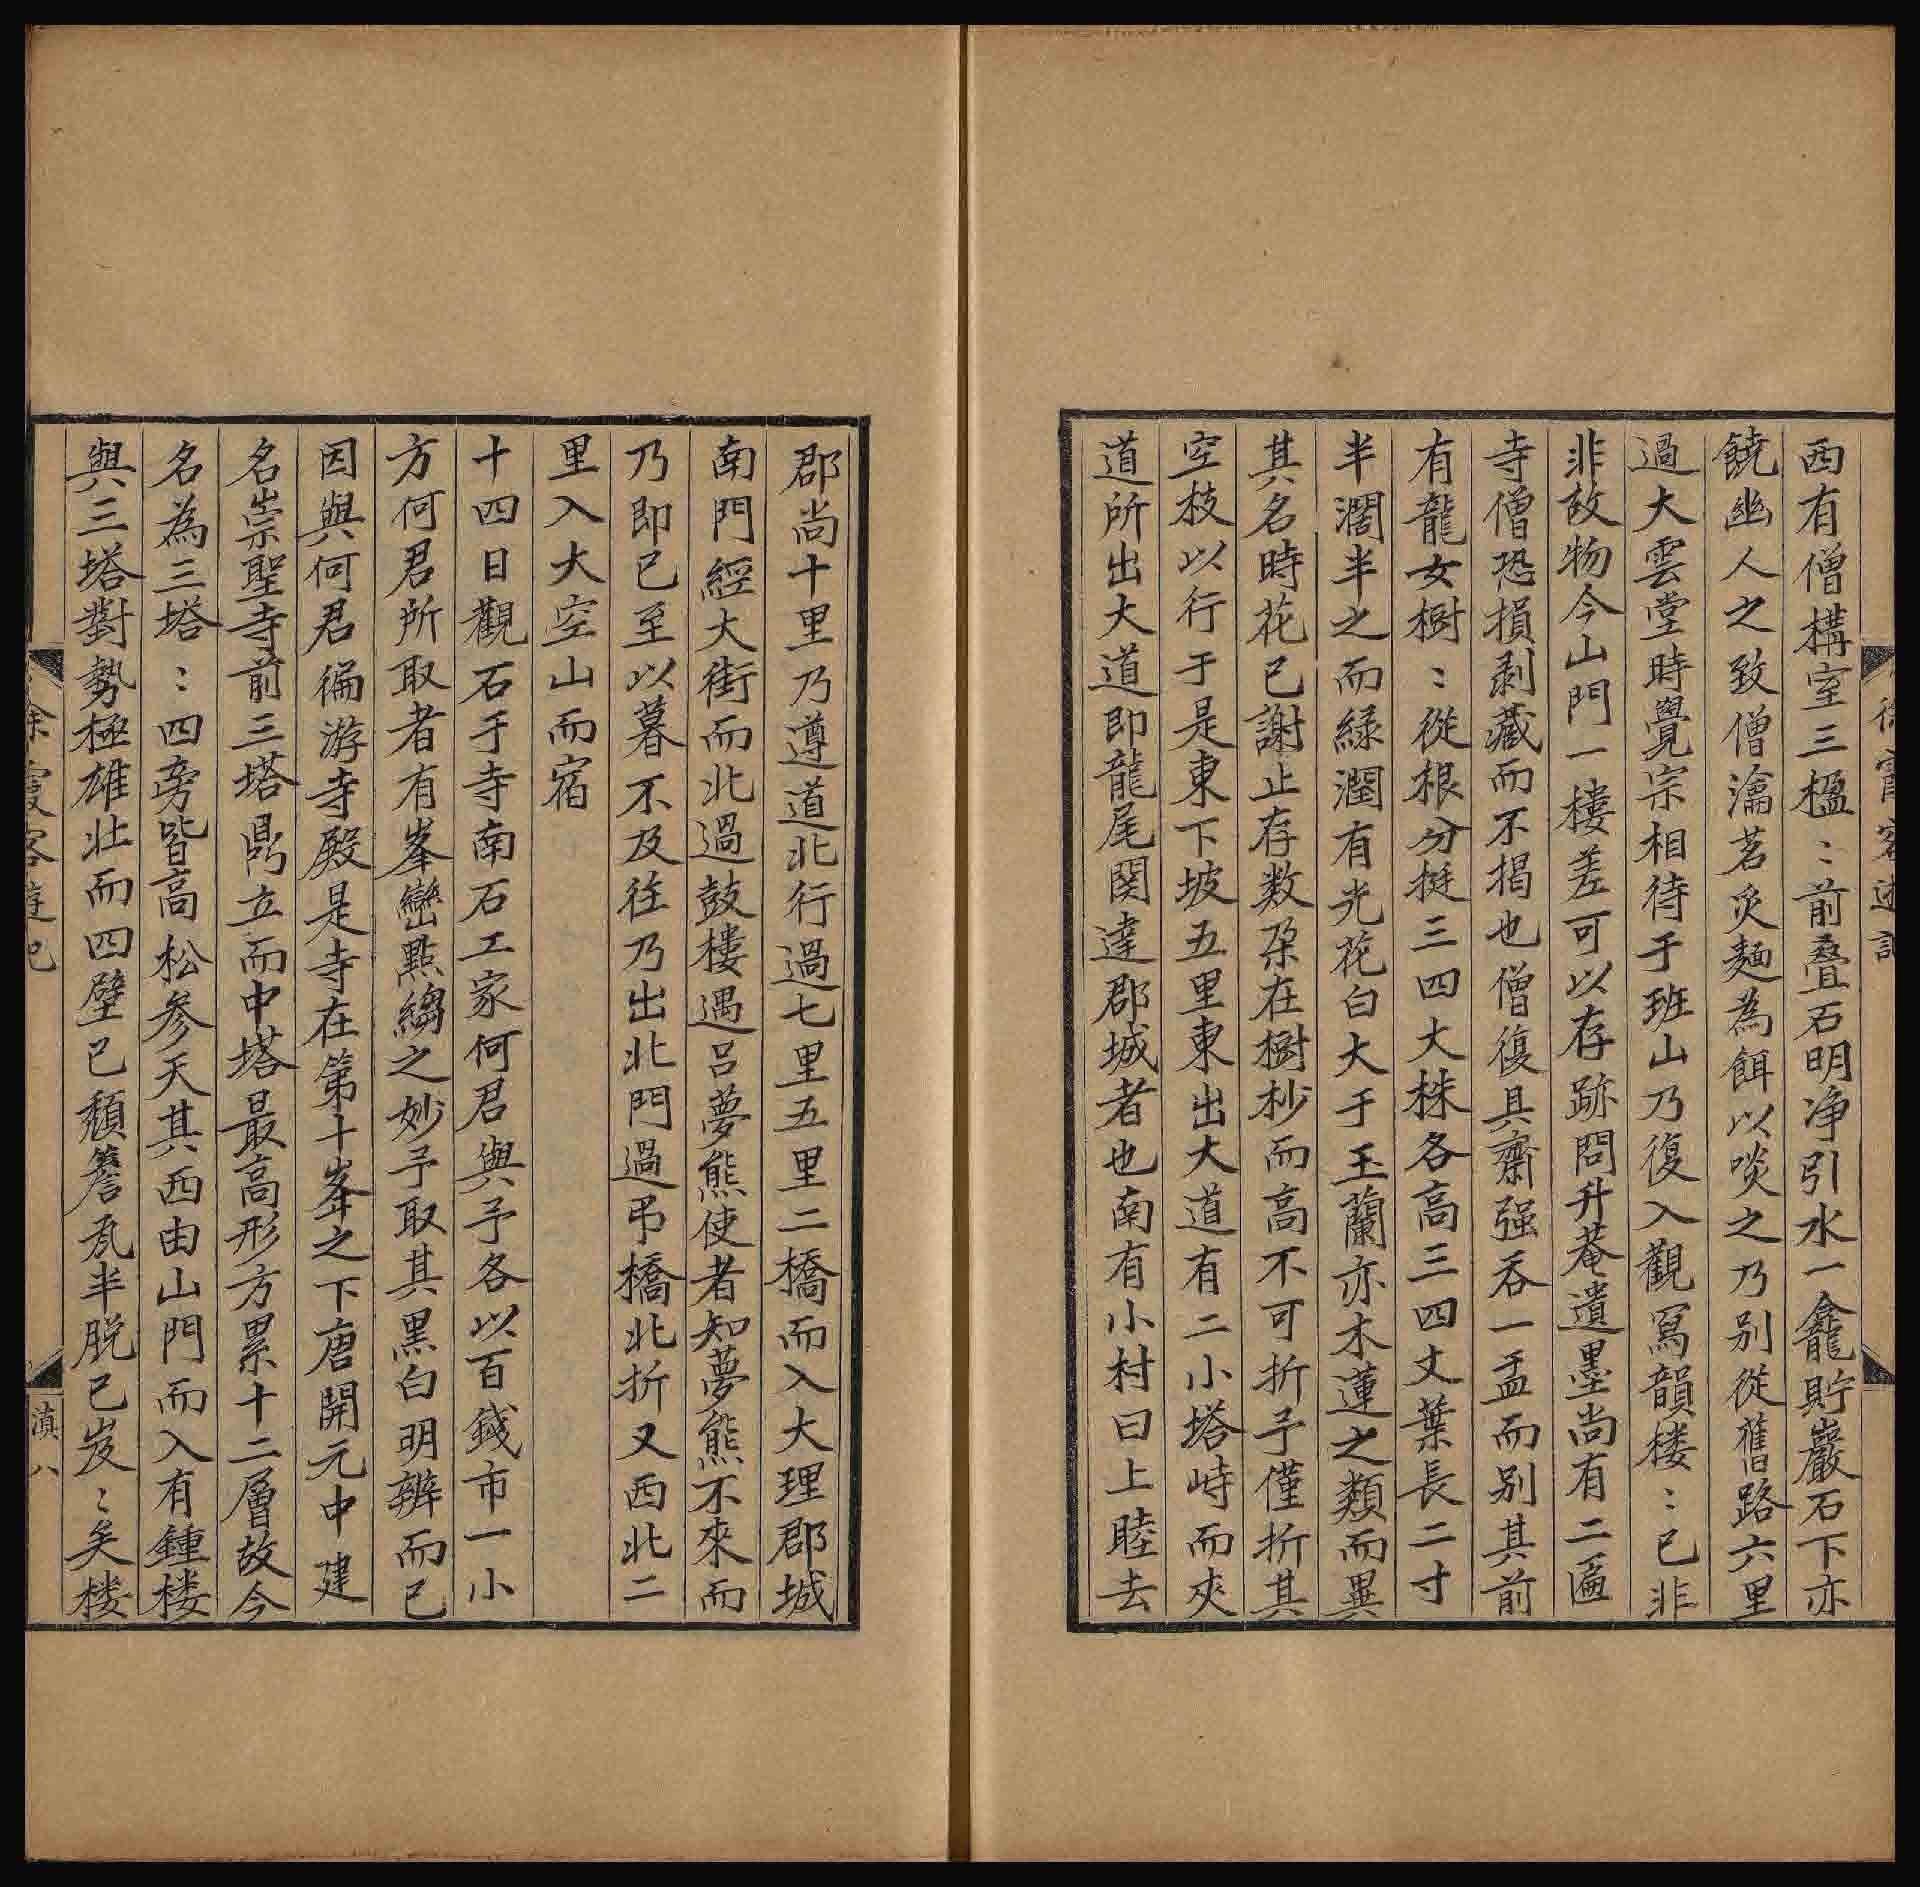 西有僧構室三楹〻前叠石明净引水一龕貯巖石下亦
饒幽人之致僧瀹茗炙麵為餌以啖之乃别從舊路六里
過大雲堂時覺宗相待于班山乃復入觀寫韻楼〻已非
非故物今山門一樓差可以存跡問升菴遺墨尚有二匾
寺僧恐損剥藏而不揭也僧復具齋强吞一盂而别其前
有龍女樹〻從根分挺三四大株各高三四丈葉長二寸
半濶半之而緑潤有光花白大于玉蘭亦木蓮之類而異
其名時花已謝止存数朶在樹杪而高不可折予僅折其
空枝以行于是東下坡五里東出大道有二小塔峙而夾
道所出大道即龍尾関達郡城者也南有小村曰上睦去
徐霞客遊記
郡尚十里乃遵道北行過七里五里二橋而入大理郡城
南門經大街而北過鼓樓遇吕夢熊使者知夢熊不來而
乃即已至以暮不及往乃出北門過弔橋北折又西北二
里入大空山而宿
十四日觀石于寺南石工家何君與予各以百錢市一小
方何君所取者有峯巒點綴之妙予取其黑白明辨而已
因與何君徧游寺殿是寺在第十峯之下唐開元中建
名崇聖寺前三塔鼎立而中塔最高形方累十二層故今
名為三塔〻四旁皆高松参天其西由山門而入有鍾楼
與三塔對勢極雄壮而四壁已頽簷瓦半脱已岌〻矣楼
徐霞客遊記
滇八